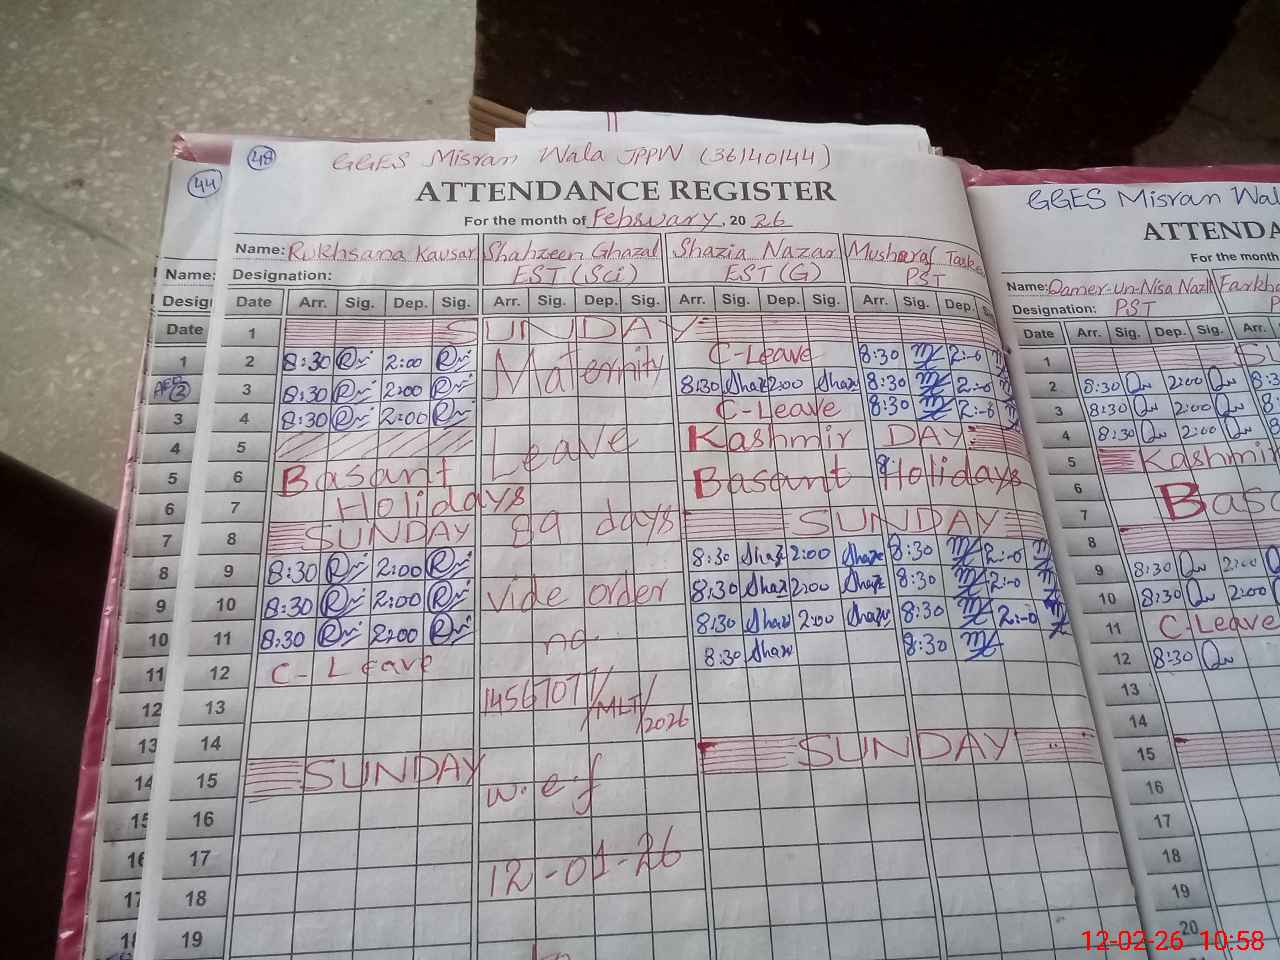 48
GGES Misran Wala JPPW (36140144)
ATTENDANCE REGISTER
For the month of February, 20 26
Name: Rukhsana Kausar Shahzeen Ghazal Shazia Nazar Musharaf
Designation: EST (Sci) EST (G) PST
Date Arr. Sig. Dep. Sig. Arr. Sig. Dep. Sig. Arr. Sig. Dep. Sig. Arr. Sig. Dep.
1 SUNDAY
2 8:30 2:00 Maternity C-Leave 8:30
3 8:30 2:00 8:30 Shaz 2:00 Shaz 8:30
4 8:30 2:00 C-Leave 8:30
5 Leave Kashmir DAY
6 Basant Basant Holidays
7 Holidays
8 SUNDAY 89 days SUNDAY
9 8:30 2:00 8:30 Shaz 2:00 Shaz 8:30
10 8:30 2:00 vide order 8:30 Shaz 2:00 Shaz 8:30
11 8:30 2:00 no. 8:30 Shaz 2:00 Shaz 8:30
12 C-Leave 8:30 Shaz 8:30
13 14567077/MLT/2026
14
15 SUNDAY w.e.f SUNDAY
16
17 12-01-26
18
19
44
Name:
Date
1
3
4
5
6
7
8
9
10
11
12
13
14
GGES Misran
Name: Qamer-Un-Nisa
Designation: PST
Date Arr. Sig. Dep. Sig. Arr.
1
2 8:30 2:00
3 8:30 2:00
4 8:30 2:00
5
6
7
8
9 8:30
10 8:30 2:00
11 C-Leave
12 8:30
13
14
15
16
17
18
19
20
12-02-26 10:58